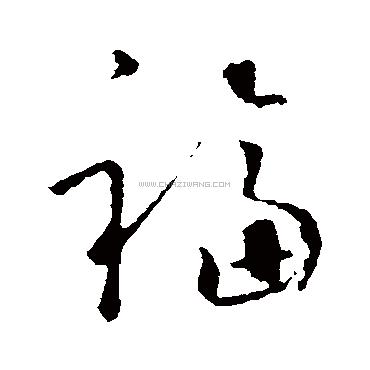 福
WWW.CHAZIWANG.COM